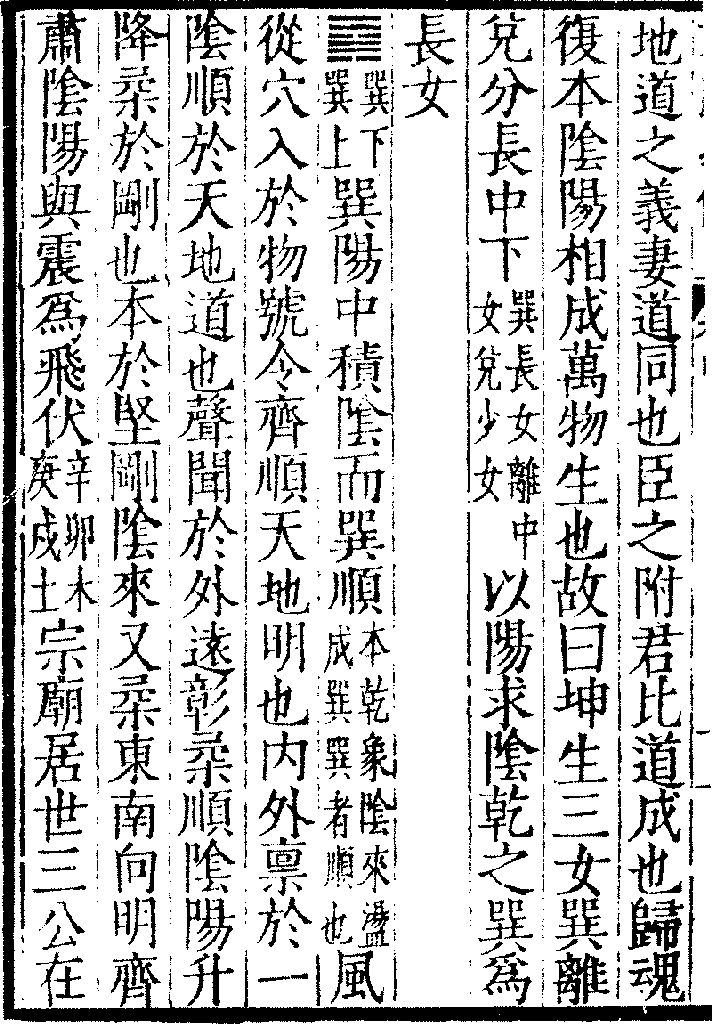 地道之義妻道同也臣之附君比道成也歸魂
復本陰陽相成萬物生也故曰坤生三女巽離
兌分長中下巽長女離中女兌少女以陽求陰乾之巽爲
長女
䷸巽下巽上巽陽中積陰而巽順本乾象陰來盪成巽巽者順也風
從穴入於物號令齊順天地明也内外禀於一
陰順於天地道也聲聞於外遠彰柔順陰陽升
降柔於剛也本於堅剛陰來又柔東南向明齊
肅陰陽與震爲飛伏辛卯木庚戌土宗廟居世三公在